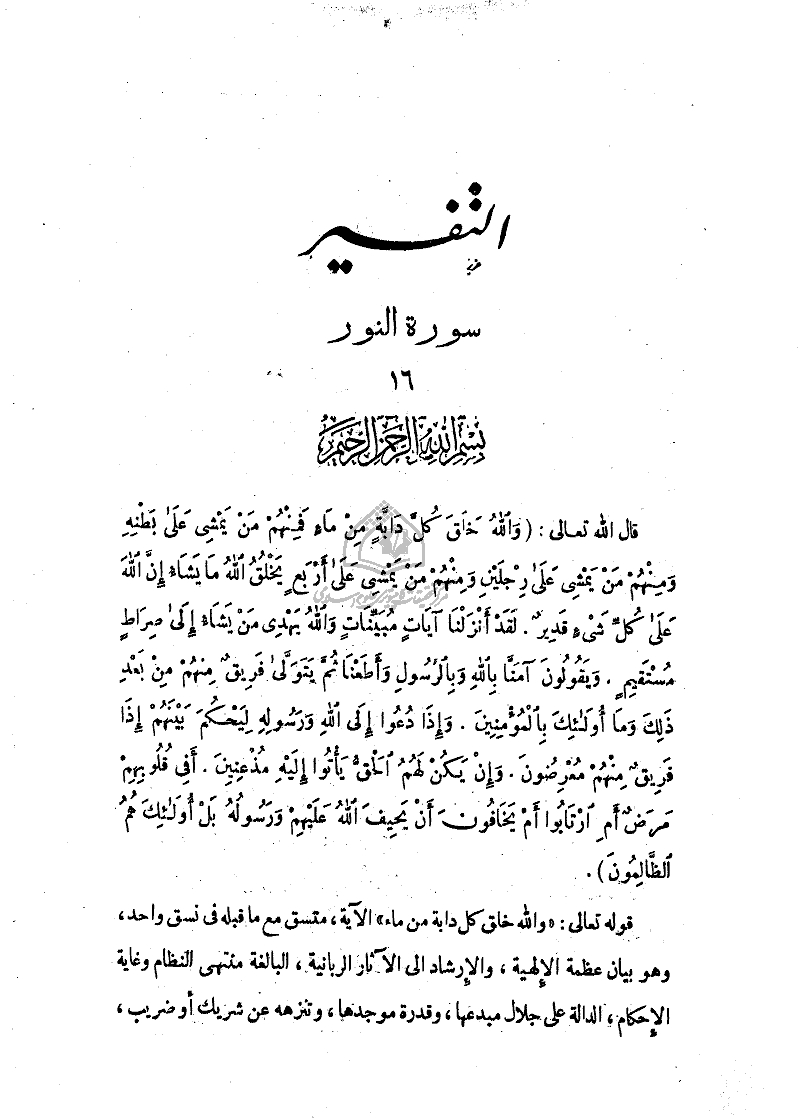 التفسير
سورة النور
١٦
بِسْمِ اللَّهِ الرَّحْمَنِ الرَّحِيمِ
قال الله تعالى : ( وَاللهُ خَالِقُ كُلِّ دَابَّةٍ مِنْ مَاءٍ فَمِنْهُمْ مَنْ يَمْشِى عَلَى بَطْنِهِ
وَمِنْهُمْ مَنْ يَمْشِى عَلَى رِجْلَيْنِ وَمِنْهُمْ مَنْ يَمْشِى عَلَى أَرْبَعٍ يَخْلُقُ اللهُ مَا يَشَاءُ إِنَّ اللهَ
عَلَى كُلِّ شَىْءٍ قَدِيرٌ . لَقَدْ أَنْزَلْنَا آيَاتٍ مُبَيِّنَاتٍ وَاللهُ يَهْدِى مَنْ يَشَاءُ إِلَى صِرَاطٍ
مُسْتَقِيمٍ . وَيَقُولُونَ آمَنَّا بِاللهِ وَبِالرَّسُولِ وَأَطَعْنَا ثُمَّ يَتَوَلَّى فَرِيقٌ مِنْهُمْ مِنْ بَعْدِ
ذَلِكَ وَمَا أُولَئِكَ بِالْمُؤْمِنِينَ . وَإِذَا دُعُوا إِلَى اللهِ وَرَسُولِهِ لِيَحْكُمَ بَيْنَهُمْ إِذَا
فَرِيقٌ مِنْهُمْ مُعْرِضُونَ . وَإِنْ يَكُنْ لَهُمُ الْحَقُّ يَأْتُوا إِلَيْهِ مُذْعِنِينَ . أَفِى قُلُوبِهِمْ
مَرَضٌ أَمِ ارْتَابُوا أَمْ يَخَافُونَ أَنْ يَحِيفَ اللهُ عَلَيْهِمْ وَرَسُولُهُ بَلْ أُولَئِكَ هُمُ
الظَّالِمُونَ ) .
قوله تعالى : «والله خالق كل دابة من ماء» الآية ، متسق مع ما قبله فى نسق واحد ،
وهو بيان عظمة الإلهية ، والإرشاد الى الآثار الربانية ، البالغة منتهى النظام وغاية
الإحكام ، الدالة على جلال مبدعها ، وقدرة موجدها ، وتنزهه عن شريك أو ضريب ،